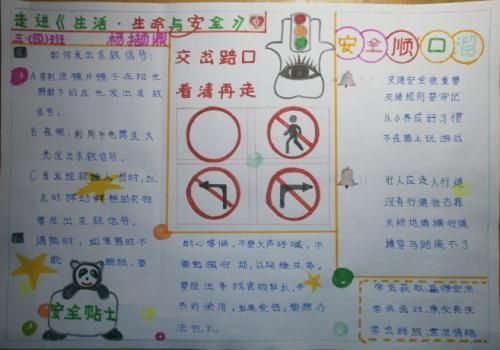 走进《生活·生命与安全》
三·(四)班
杨
鼎
如何发出求救信号:
A 利用镜片镜子在阳光
照射下的反光发出求救
信号。
B 夜晚,利用手电筒及火
光发出求救信号。
C 当发现救援人员时,应
及时挥动鲜艳的衣物
等发出求救信号。
遇险时,如果暂时不
能脱险,要
安全贴士
交岔路口
看清再走
耐心等候,不要大声呼喊,不
要勉强行动,以延续生命。
要设法寻找食物和水,并
节约使用,如果受伤,要想办
法包扎
安全顺口溜
交通安全很重要
交通规则要牢记
从小养成好习惯
不在路上玩游戏
行人应走人行道
没有行道往右靠
天桥地道横行道
横穿马路离不了
学会获取,赢得安全
学会面对,乐全长天
学会释放,